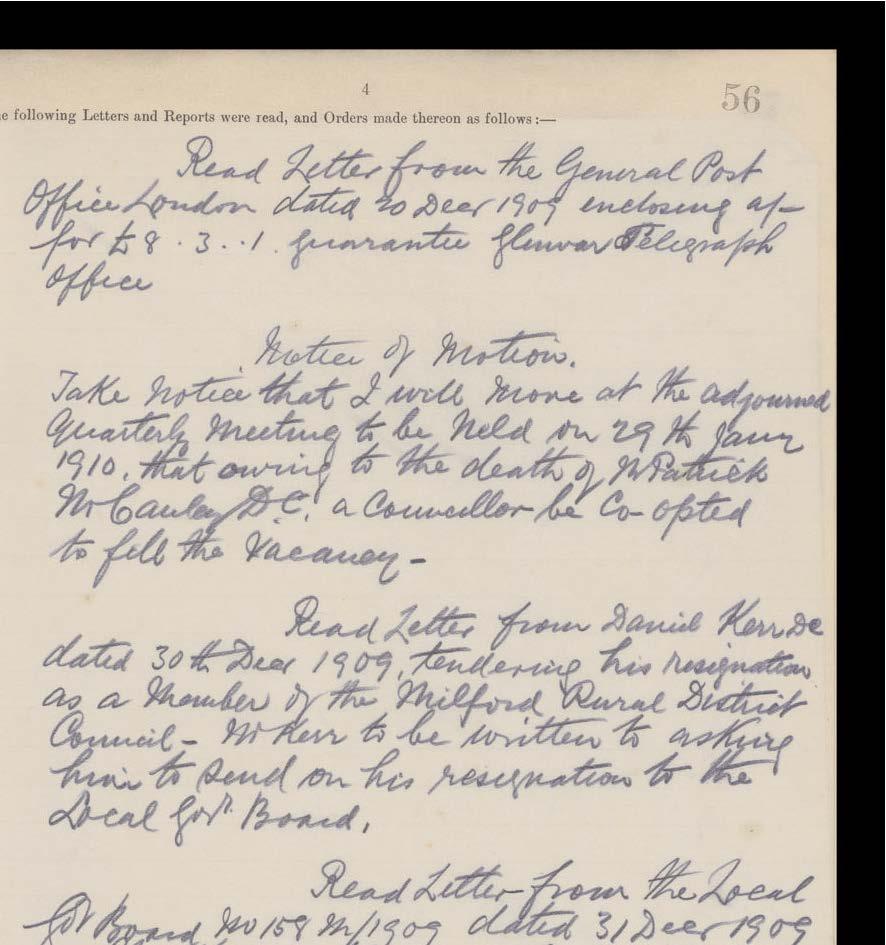 4
56
e following Letters and Reports were read, and Orders made thereon as follows :—
Read Letter from the General Post
Office London dated 20 Decr 1909 enclosing a/-
for £8 . 3 . . 1 . guarantee Glenvar Telegraph
Office
Notice of Motion.
Take Notice that I will move at the adjourned
Quarterly Meeting to be held on 29th Jany
1910, that owing to the death of Mr Patrick
McCauley D.C. a Councillor be Co-opted
to fill the Vacancy –
Read Letter from Daniel Kerr DC
dated 30th Decr 1909, tendering his resignation
as a Member of the Milford Rural District
Council – Mr Kerr to be written to asking
him to send on his resignation to the
Local Govt. Board.
Read Letter from the Local
Govt Board No 158 M/1909 dated 31 Decr 1909